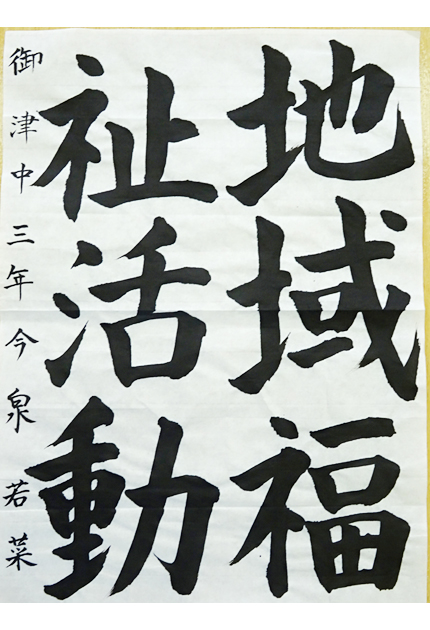 地域福
祉活動
御津中三年今泉若菜